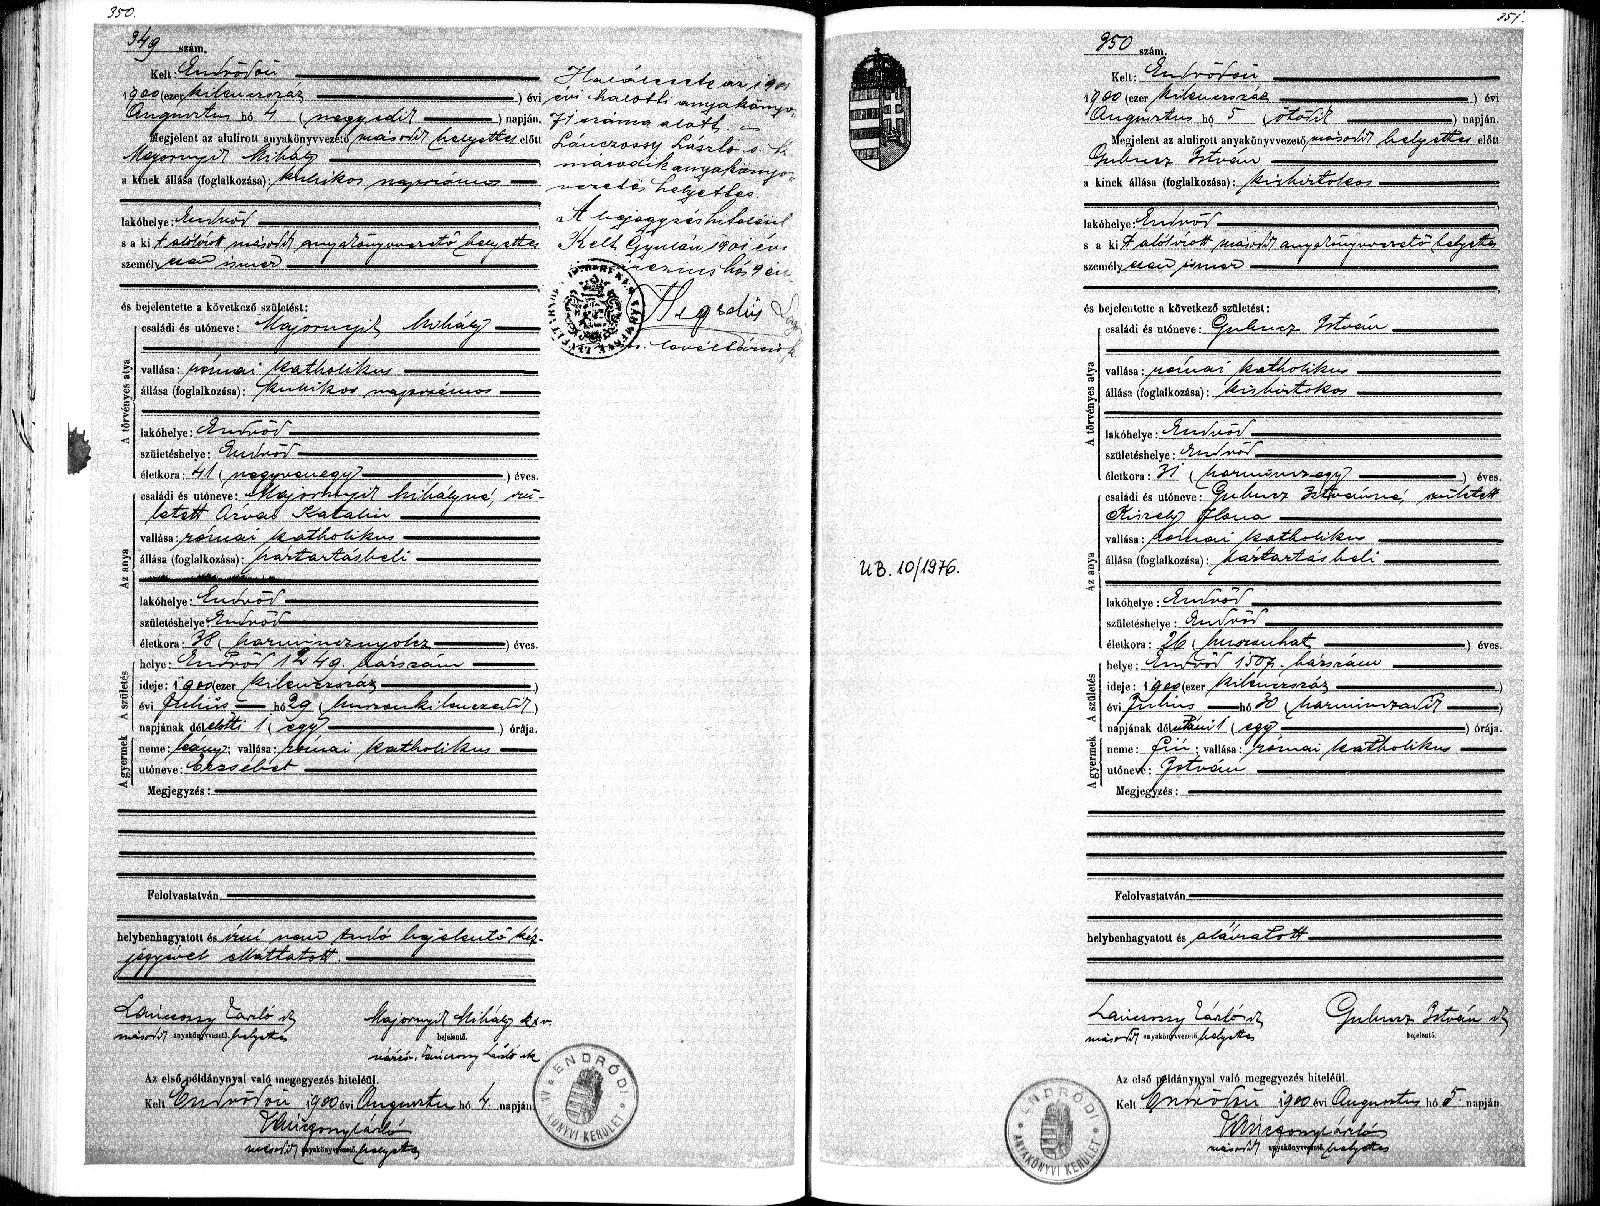 350.
349 szám.
Kelt: Endrődön
1900 (ezer kilenczszáz) évi
Augusztus hó 4 (negyedik) napján.
Megjelent az alulirott anyakönyvvezető második helyettes előtt
Majornyik Mihály
a kinek állása (foglalkozása): kubikos napszámos
lakóhelye: Endrőd
s a ki t alólirott második anyakönyvvezető helyettes
személyesen ismer
és bejelentette a következő születést:
A törvényes atya
családi és utóneve: Majornyik Mihály
vallása: római katholikus
állása (foglalkozása): kubikos napszámos
lakóhelye: Endrőd
születéshelye: Endrőd
életkora: 41 (negyvenegy) éves.
Az anya
családi és utóneve: Majornyik Mihályné, szü-
letett Arvai Katalin
vallása: római katholikus
állása (foglalkozása): háztartásbeli
lakóhelye: Endrőd
születéshelye: Endrőd
életkora: 38 (harmincznyolcz) éves.
A születés
helye: Endrőd 1249 házszám
ideje: 1900 (ezer kilenczszáz)
évi Julius hó 29 (huszonkilenczedik)
napjának délelőtti 1 (egy) órája.
A gyermek
neme: leány; vallása: római katholikus
utóneve: Erzsébet
Megjegyzés:
Felolvastatván
helybenhagyatott és irni nem tudó bejelentő kéz-
jegyével elláttatott.
Lánczossy László sk Majornyik Mihály k.v.
második anyakönyvvezető helyettes bejelentő.
Lánczossy László sk
Az első példánynyal való megegyezés hiteléül.
Kelt Endrődön 1900 évi Augusztus hó 4 napján
Lánczossy László
második anyakönyvvezető helyettes
ENDRŐDI ANYAKÖNYVI KERÜLET
Halálesete az 1901
évi halotti anyakönyv
71 száma alatt
Lánczossy László s. k.
második anyakönyv-
vezető helyettes.
A bejegyzés hiteléül
Kelt Gyulán 1901 évi
hó 9 én
Hegedűs
levéltárnok
351.
350 szám.
Kelt: Endrődön
1900 (ezer kilenczszáz) évi
Augusztus hó 5 (ötödik) napján.
Megjelent az alulirott anyakönyvvezető második helyettes előtt
Gubucz István
a kinek állása (foglalkozása): kisbirtokos
lakóhelye: Endrőd
s a ki t alólirott második anyakönyvvezető helyettes
személyesen ismer
és bejelentette a következő születést:
A törvényes atya
családi és utóneve: Gubucz István
vallása: római katholikus
állása (foglalkozása): kisbirtokos
lakóhelye: Endrőd
születéshelye: Endrőd
életkora: 31 (harminczegy) éves.
Az anya
családi és utóneve: Gubucz Istvánné, született
Kiszely Ilona
vallása: római katholikus
állása (foglalkozása): háztartásbeli
lakóhelye: Endrőd
születéshelye: Endrőd
életkora: 26 (huszonhat) éves.
A születés
helye: Endrőd 1507. házszám
ideje: 1900 (ezer kilenczszáz)
évi Julius hó 30 (harminczadik)
napjának délutáni 1 (egy) órája.
A gyermek
neme: fiú; vallása: római katholikus
utóneve: István
Megjegyzés:
Felolvastatván
helybenhagyatott és aláiratott
Lánczossy László sk Gubucz István sk
második anyakönyvvezető helyettes bejelentő.
Az első példánynyal való megegyezés hiteléül.
Kelt Endrődön 1900 évi Augusztus hó 5 napján
Lánczossy László
második anyakönyvvezető helyettes
ENDRŐDI ANYAKÖNYVI KERÜLET
UB. 10/1976.